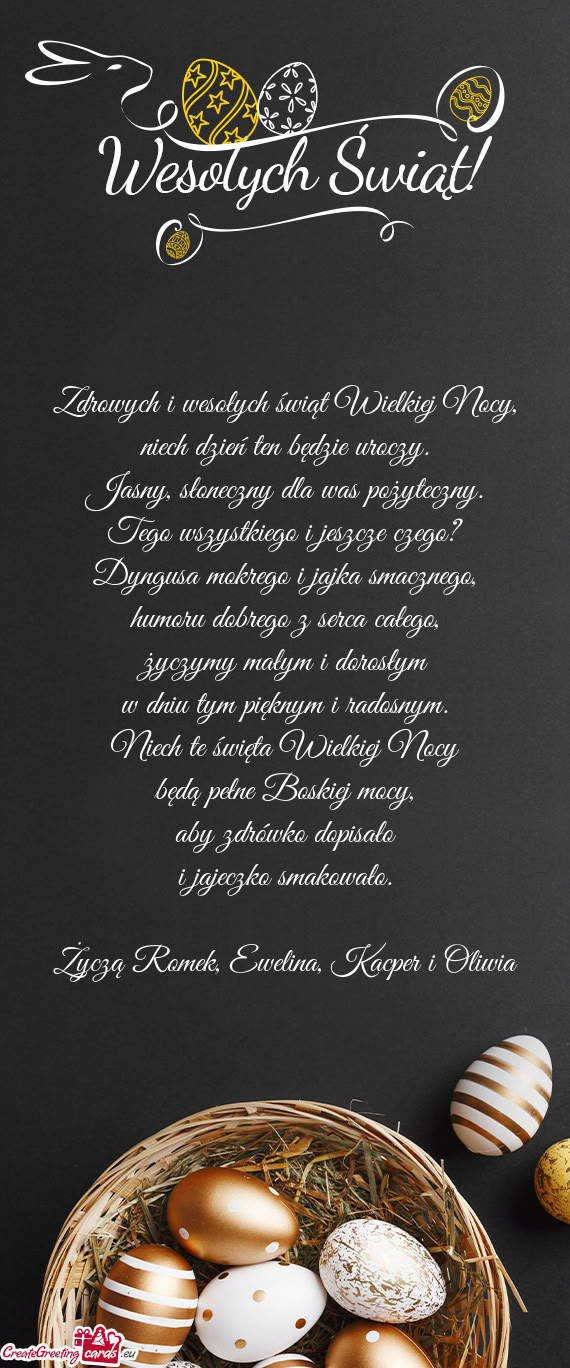 Wesołych Świąt!
Zdrowych i wesołych świąt Wielkiej Nocy,
niech dzień ten będzie uroczy.
Jasny, słoneczny dla was pożyteczny.
Tego wszystkiego i jeszcze czego?
Dyngusa mokrego i jajka smacznego,
humoru dobrego z serca całego,
życzymy małym i dorosłym
w dniu tym pięknym i radosnym.
Niech te święta Wielkiej Nocy
będą pełne Boskiej mocy,
aby zdrówko dopisało
i jajeczko smakowało.
Życzą Romek, Ewelina, Kacper i Oliwia
CreateGreetingcards.eu